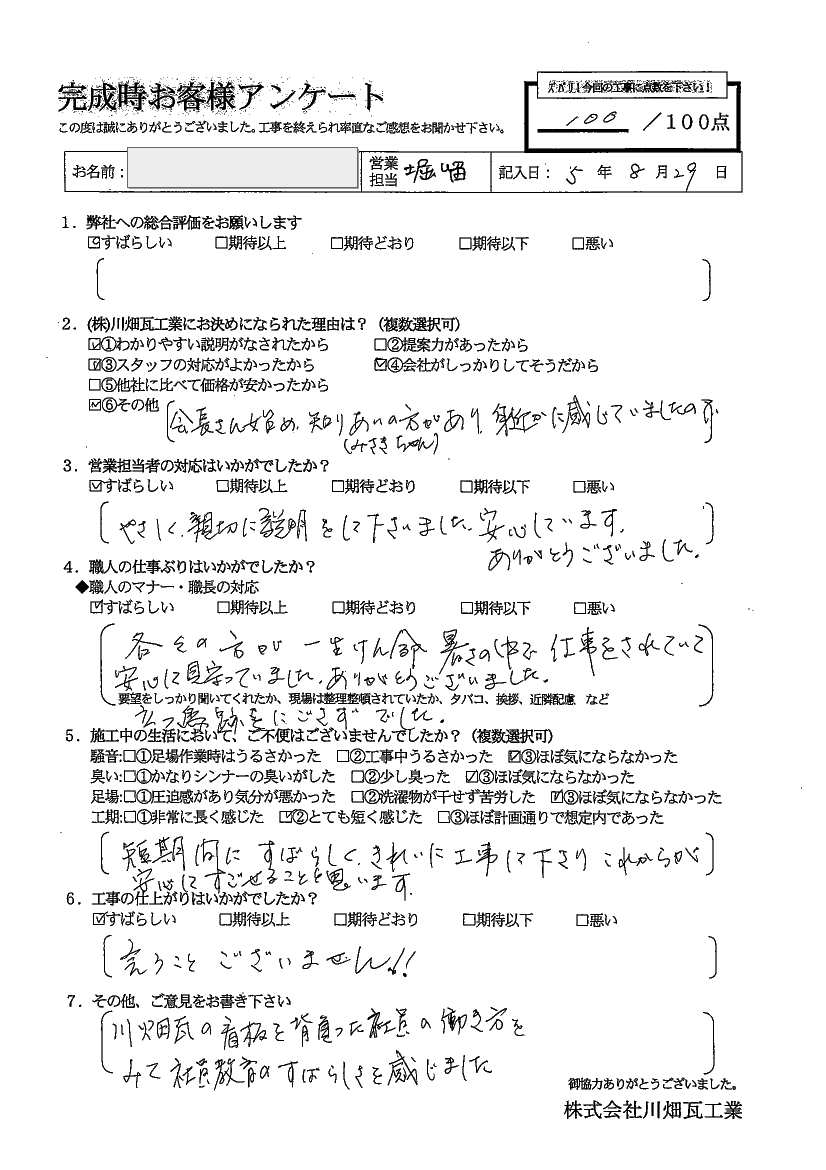 完成時お客様アンケート
ズバリ!今回の工事に点数を下さい!
100 /100点
この度は誠にありがとうございました。工事を終えられ率直なご感想をお聞かせ下さい。
お名前: 営業担当 堀 記入日: 5 年 8 月 29 日
1．弊社への総合評価をお願いします
☑すばらしい □期待以上 □期待どおり □期待以下 □悪い
2．(株)川畑瓦工業にお決めになられた理由は？（複数選択可）
☑①わかりやすい説明がなされたから □②提案力があったから
☑③スタッフの対応がよかったから ☑④会社がしっかりしてそうだから
□⑤他社に比べて価格が安かったから
☑⑥その他 会長さん始め、知りあいの方があり、身近かに感じていましたので
(みさきちゃん)
3．営業担当者の対応はいかがでしたか？
☑すばらしい □期待以上 □期待どおり □期待以下 □悪い
やさしく、親切に説明をして下さいました。安心しています。
ありがとうございました。
4．職人の仕事ぶりはいかがでしたか？
◆職人のマナー・職長の対応
☑すばらしい □期待以上 □期待どおり □期待以下 □悪い
各その方が 一生けん命 暑さの中で 仕事をされていて
安心に見守っていました。ありがとうございました。
要望をしっかり聞いてくれたか、現場は整理整頓されていたか、タバコ、挨拶、近隣配慮 など
立つ鳥跡をにごさずでした。
5．施工中の生活において、ご不便はございませんでしたか？（複数選択可）
騒音:□①足場作業時はうるさかった □②工事中うるさかった ☑③ほぼ気にならなかった
臭い:□①かなりシンナーの臭いがした □②少し臭った ☑③ほぼ気にならなかった
足場:□①圧迫感があり気分が悪かった □②洗濯物が干せず苦労した ☑③ほぼ気にならなかった
工期:□①非常に長く感じた ☑②とても短く感じた □③ほぼ計画通りで想定内であった
短期間に すばらしく、きれいに工事して下さり これからが
安心してすごせることを思います。
6．工事の仕上がりはいかがでしたか？
☑すばらしい □期待以上 □期待どおり □期待以下 □悪い
言うこと ございません!!
7．その他、ご意見をお書き下さい
川畑瓦の看板を背負った社員の働き方を
みて社員教育のすばらしさを感じました
御協力ありがとうございました。
株式会社川畑瓦工業